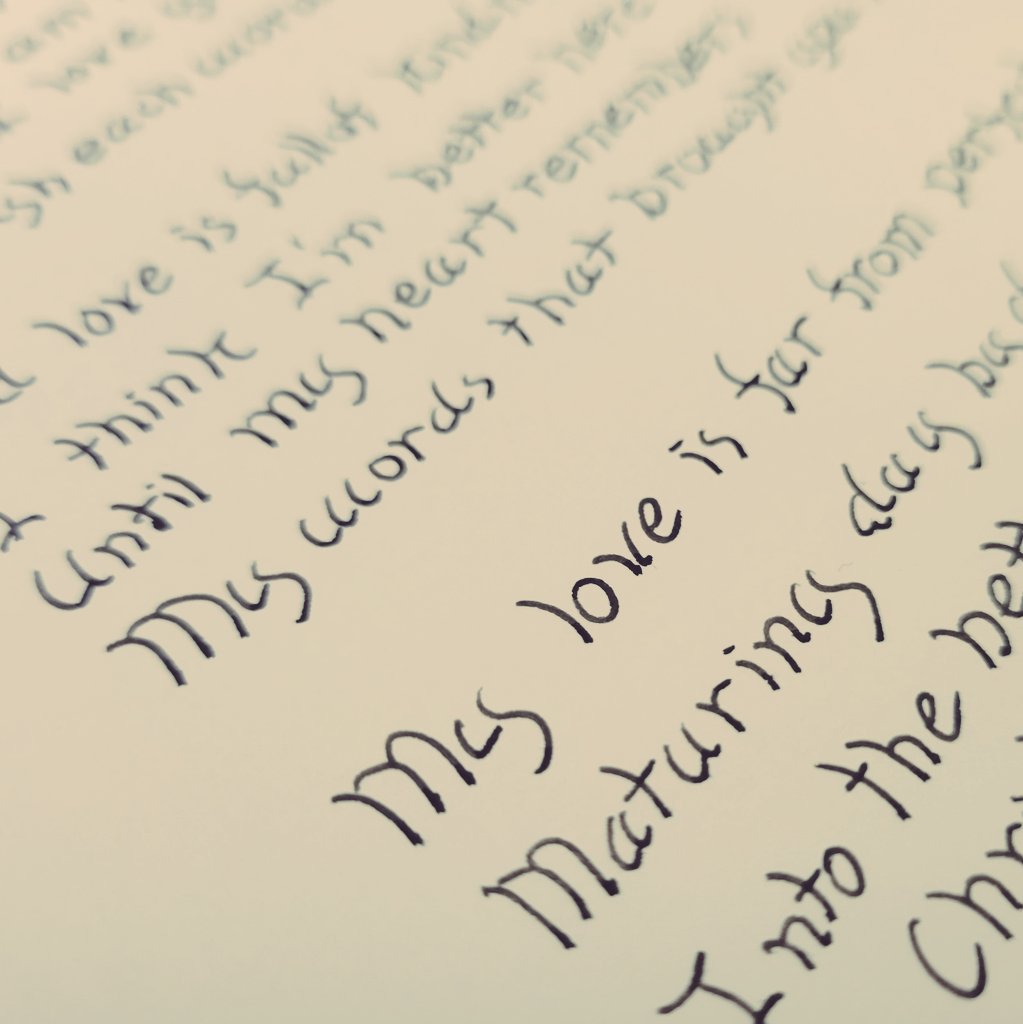 am
love
each words
love is full of kind
I think I'm better here
Until my heart remembers
My words that brought you
My love is far from perf
Maturing day by d
Into the bett
Chr